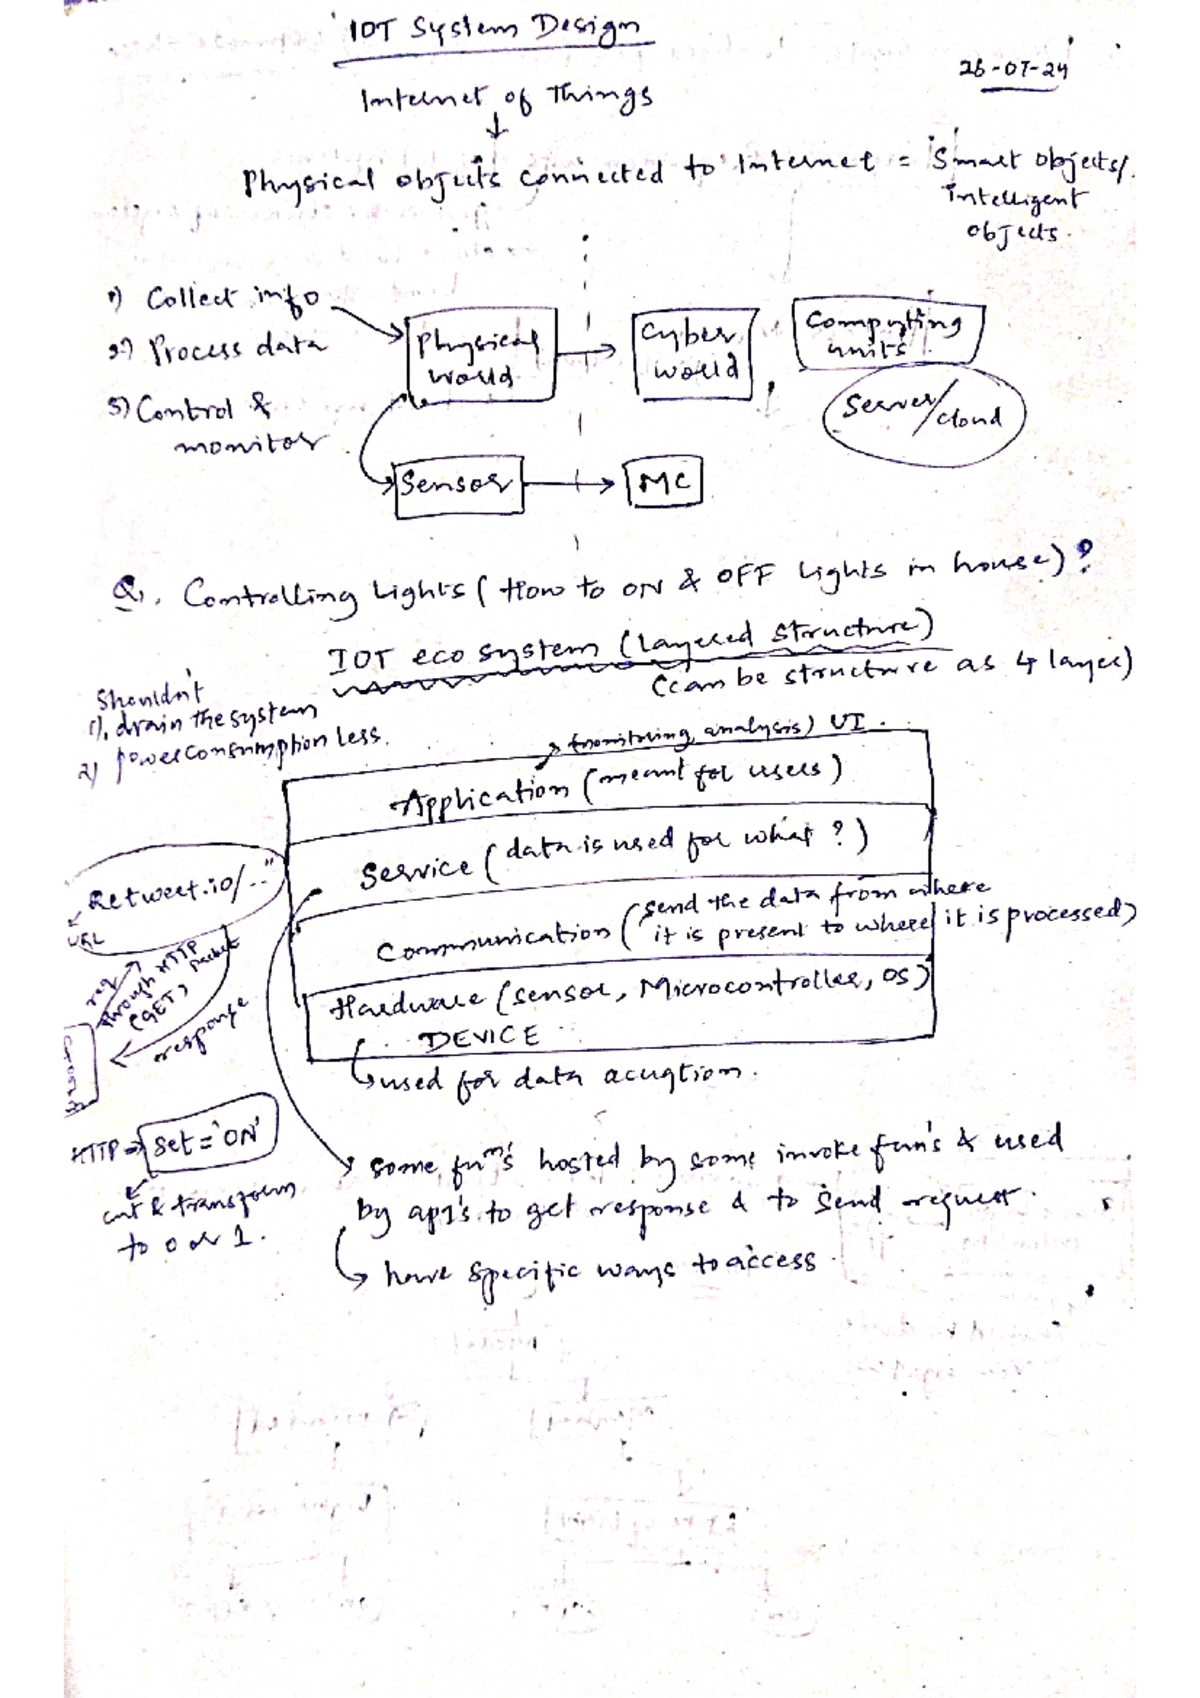 IOT System Design
26-07-24
Internet of Things
↓
Physical objects connected to Internet = Smart objects/
Intelligent
objects.
1) Collect info
2) Process data
3) Control &
monitor
Physical
world
Cyber
world
Computing
units
Server/
cloud
Sensor
MC
Q. Controlling Lights (How to ON & OFF Lights in house)?
IOT eco system (Layered Structure)
(can be structure as 4 layer)
Shouldn't
1). drain the system
2) power consumption less.
(monitoring, analysis) UI.
Application (meant for users)
Service (data is used for what ?)
Communication (send the data from where
it is present to where it is processed)
Hardware (sensor, Microcontroller, OS)
DEVICE
used for data acuqtion.
Retweet.io/.."
URL
req
through HTTP
packet
(GET)
response
HTTP → Set = 'ON'
cut & transform
to 0 or 1.
some fun's hosted by some invoke fun's & used
by api's to get response & to send request.
have specific ways to access.